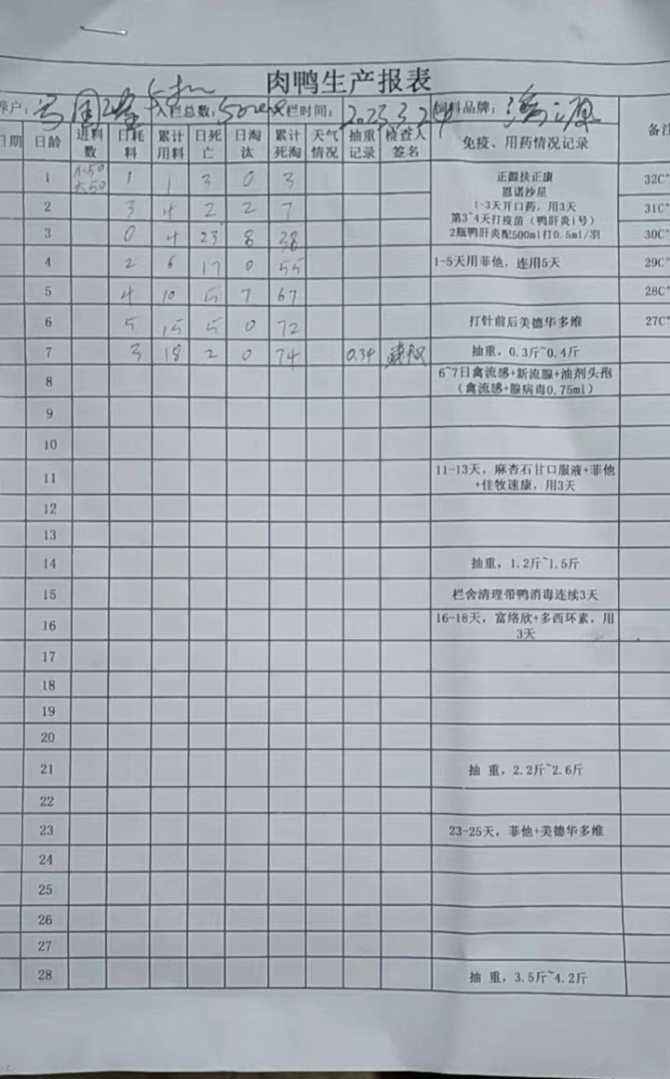 肉鸭生产报表
养户： 入栏总数：5 栏时间：2023.3.24 饲料品牌：
日期 日龄 进料数 日耗料 累计用料 日死亡 日淘汰 累计死淘 天气情况 抽重记录 检查人签名 免疫、用药情况记录 备注
1 1 1 3 0 3 正源扶正康 32C°
恩诺沙星
1-3天开口药，用3天
2 3 4 2 2 7 第3~4天打疫苗（鸭肝炎1号） 31C°
3 0 4 23 8 38 2瓶鸭肝炎配500ml打0.5ml/羽 30C°
4 2 6 17 0 55 1-5天用菲他，连用5天 29C°
5 4 10 5 7 67 28C°
6 5 15 5 0 72 打针前后美德华多维 27C°
7 3 18 2 0 74 0.34 抽重，0.3斤~0.4斤
8 6~7日禽流感+新流腺+油剂头孢
（禽流感+腺病毒0.75ml）
9
10
11 11-13天，麻杏石甘口服液+菲他
+佳牧速康，用3天
12
13
14 抽重，1.2斤~1.5斤
15 栏舍清理带鸭消毒连续3天
16 16-18天，富络欣+多西环素，用
3天
17
18
19
20
21 抽 重，2.2斤~2.6斤
22
23 23-25天，菲他+美德华多维
24
25
26
27
28 抽 重，3.5斤~4.2斤